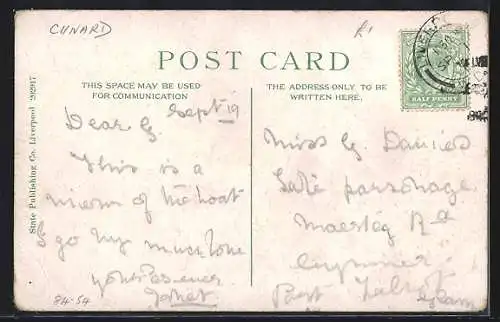 CUNARD
£1
POST CARD
THIS SPACE MAY BE USED
FOR COMMUNICATION
THE ADDRESS ONLY TO BE
WRITTEN HERE.
HALF PENNY
State Publishing Co. Liverpool
Sept 19
Dear G.
This is a
view of the boat
I go by much love
yours ever
Janet
84-54
Miss G. Davies
parsonage
Maesteg Rd
Port Talbot
Glam